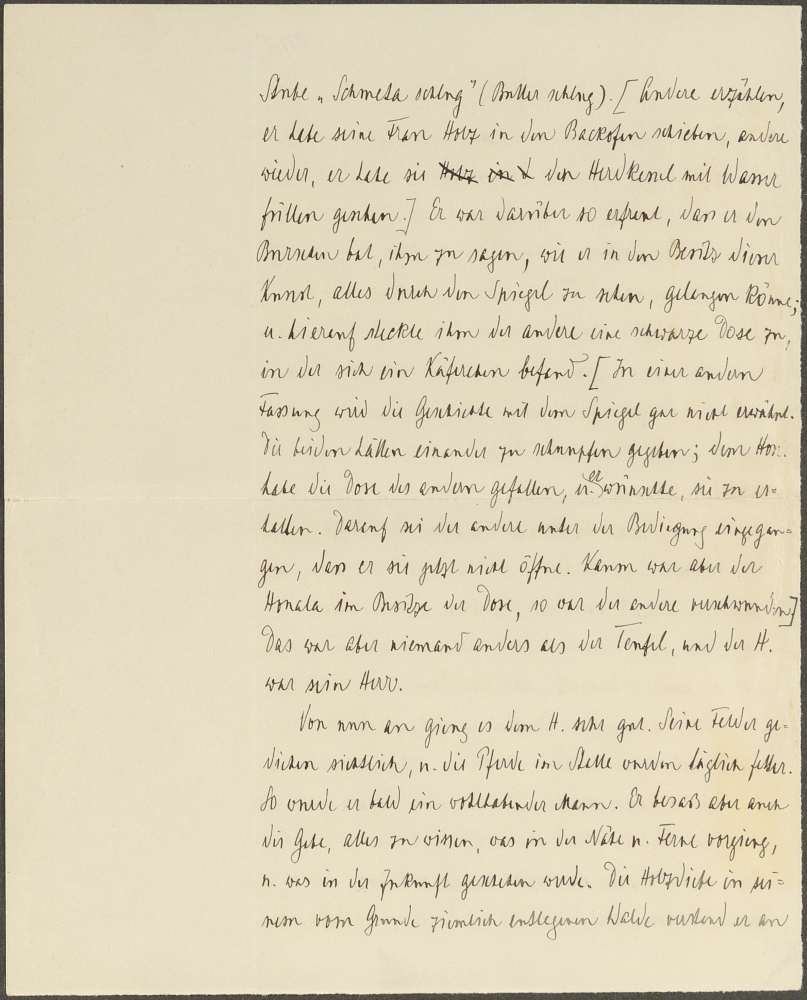 Stube „Schmeta schlug" (Butter schlug). [Andere erzählen,
er habe seine Frau Holz in den Backofen schieben, andere
wieder, er habe sie Holz in d den Herdkessel mit Wasser
füllen gesehen.] Er war darüber so erfreut, dass er den
Burschen bat, ihm zu sagen, wie er in den Besitz dieser
Kunst, alles durch den Spiegel zu sehen, gelangen könne;
u. hierauf steckte ihm der andere eine schwarze Dose zu,
in der sich ein Käferchen befand. [In einer andern
Fassung wird die Geschichte mit dem Spiegel gar nicht erwähnt.
Die beiden hätten einander zu schnupfen gegeben; dem Hon.
habe die Dose des andern gefallen, er wünschte, sie zu er=
halten. Darauf sei der andere unter der Bedingung eingegan=
gen, dass er sie jetzt nicht öffne. Kaum war aber der
Honala im Besitze der Dose, so war der andere verschwunden.]
Das war aber niemand anders als der Teufel, und der H.
war sein Herr.
Von nun an gieng es dem H. sehr gut. Seine Felder ge=
diehen sichtlich, u. die Pferde im Stalle wurden täglich fetter.
So wurde er bald ein wohlhabender Mann. Er besaß aber auch
die Gabe, alles zu wissen, was in der Nähe u. Ferne vorgieng,
u. was in der Zukunft geschehen werde. Die Holzdiebe in sei=
nem vom Grunde ziemlich entlegenen Walde verstand er an